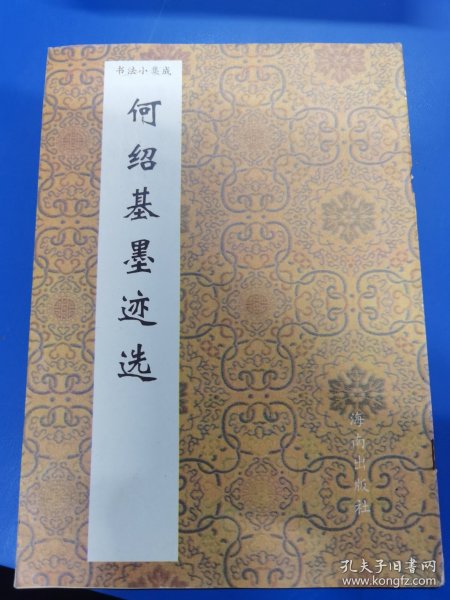 书法小集成
何绍基墨迹选
海南出版社
孔夫子旧书网
www.kongfz.com